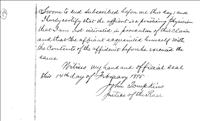 Sworn to and Subscribed before me this day; and
I hereby certify that the affiant is a practicing physician
that I am not interested in prosecution of this Claim
and that the affiant acquainted himself with
the Contents of the affidavit before he executed the
same
Witness my hand and official seal
this 14th day of February 1885
John Tompkins
Justice of the Peace